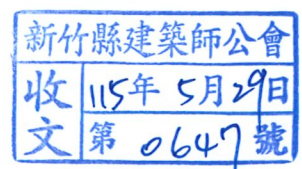 新竹縣建築師公會
收文
115年 5月29日
第 0647 號